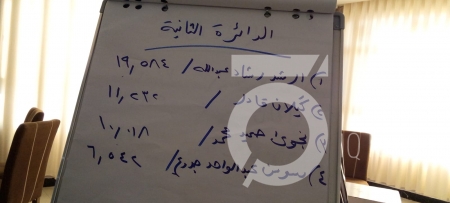 الدائرة الثانية
١) ارشد رشاد عبدالله / ١٩,٥٨٤
٢) گيلان قادر / ١١,٢٣٢
٣) نجوى حميد محمد / ١٠,٠١٨
٤) سوسن عبدالواحد جدوع / ٦,٥٤٢